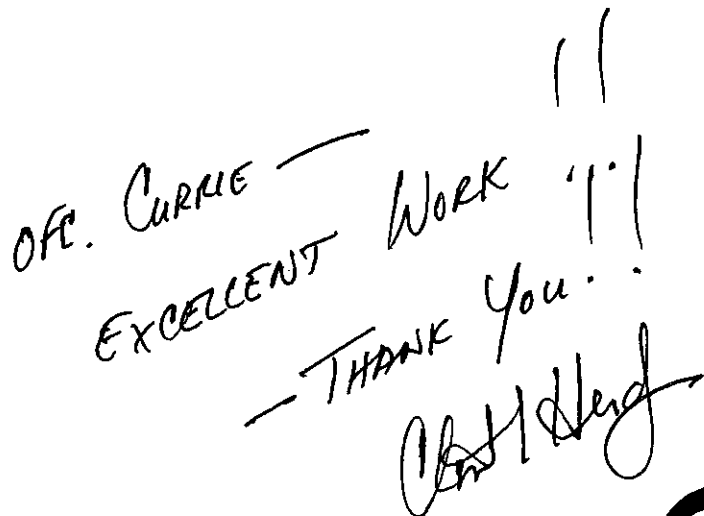 OFC. CURRIE —
EXCELLENT WORK !!
— THANK YOU !!